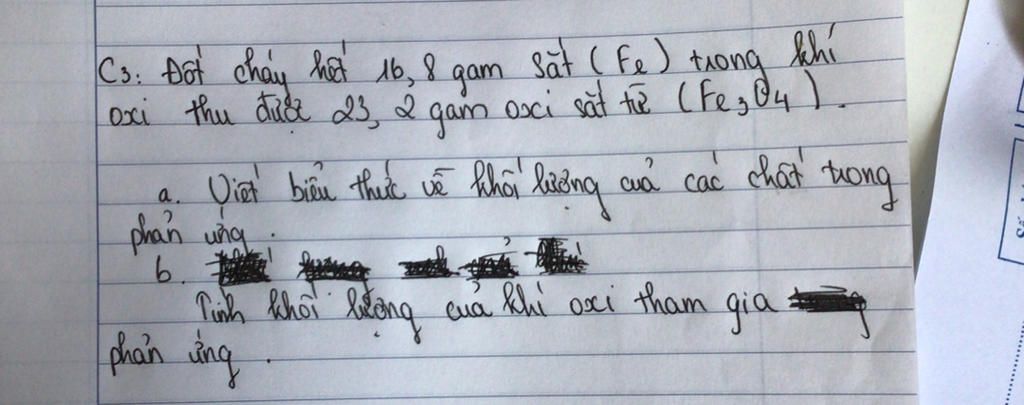 C3: Đốt cháy hết 16,8 gam sắt (Fe) trong khí
oxi thu được 23,2 gam oxi sắt từ (Fe3O4).
a. Viết biểu thức về khối lượng của các chất trong
phản ứng.
b.
Tính khối lượng của khí oxi tham gia
phản ứng.